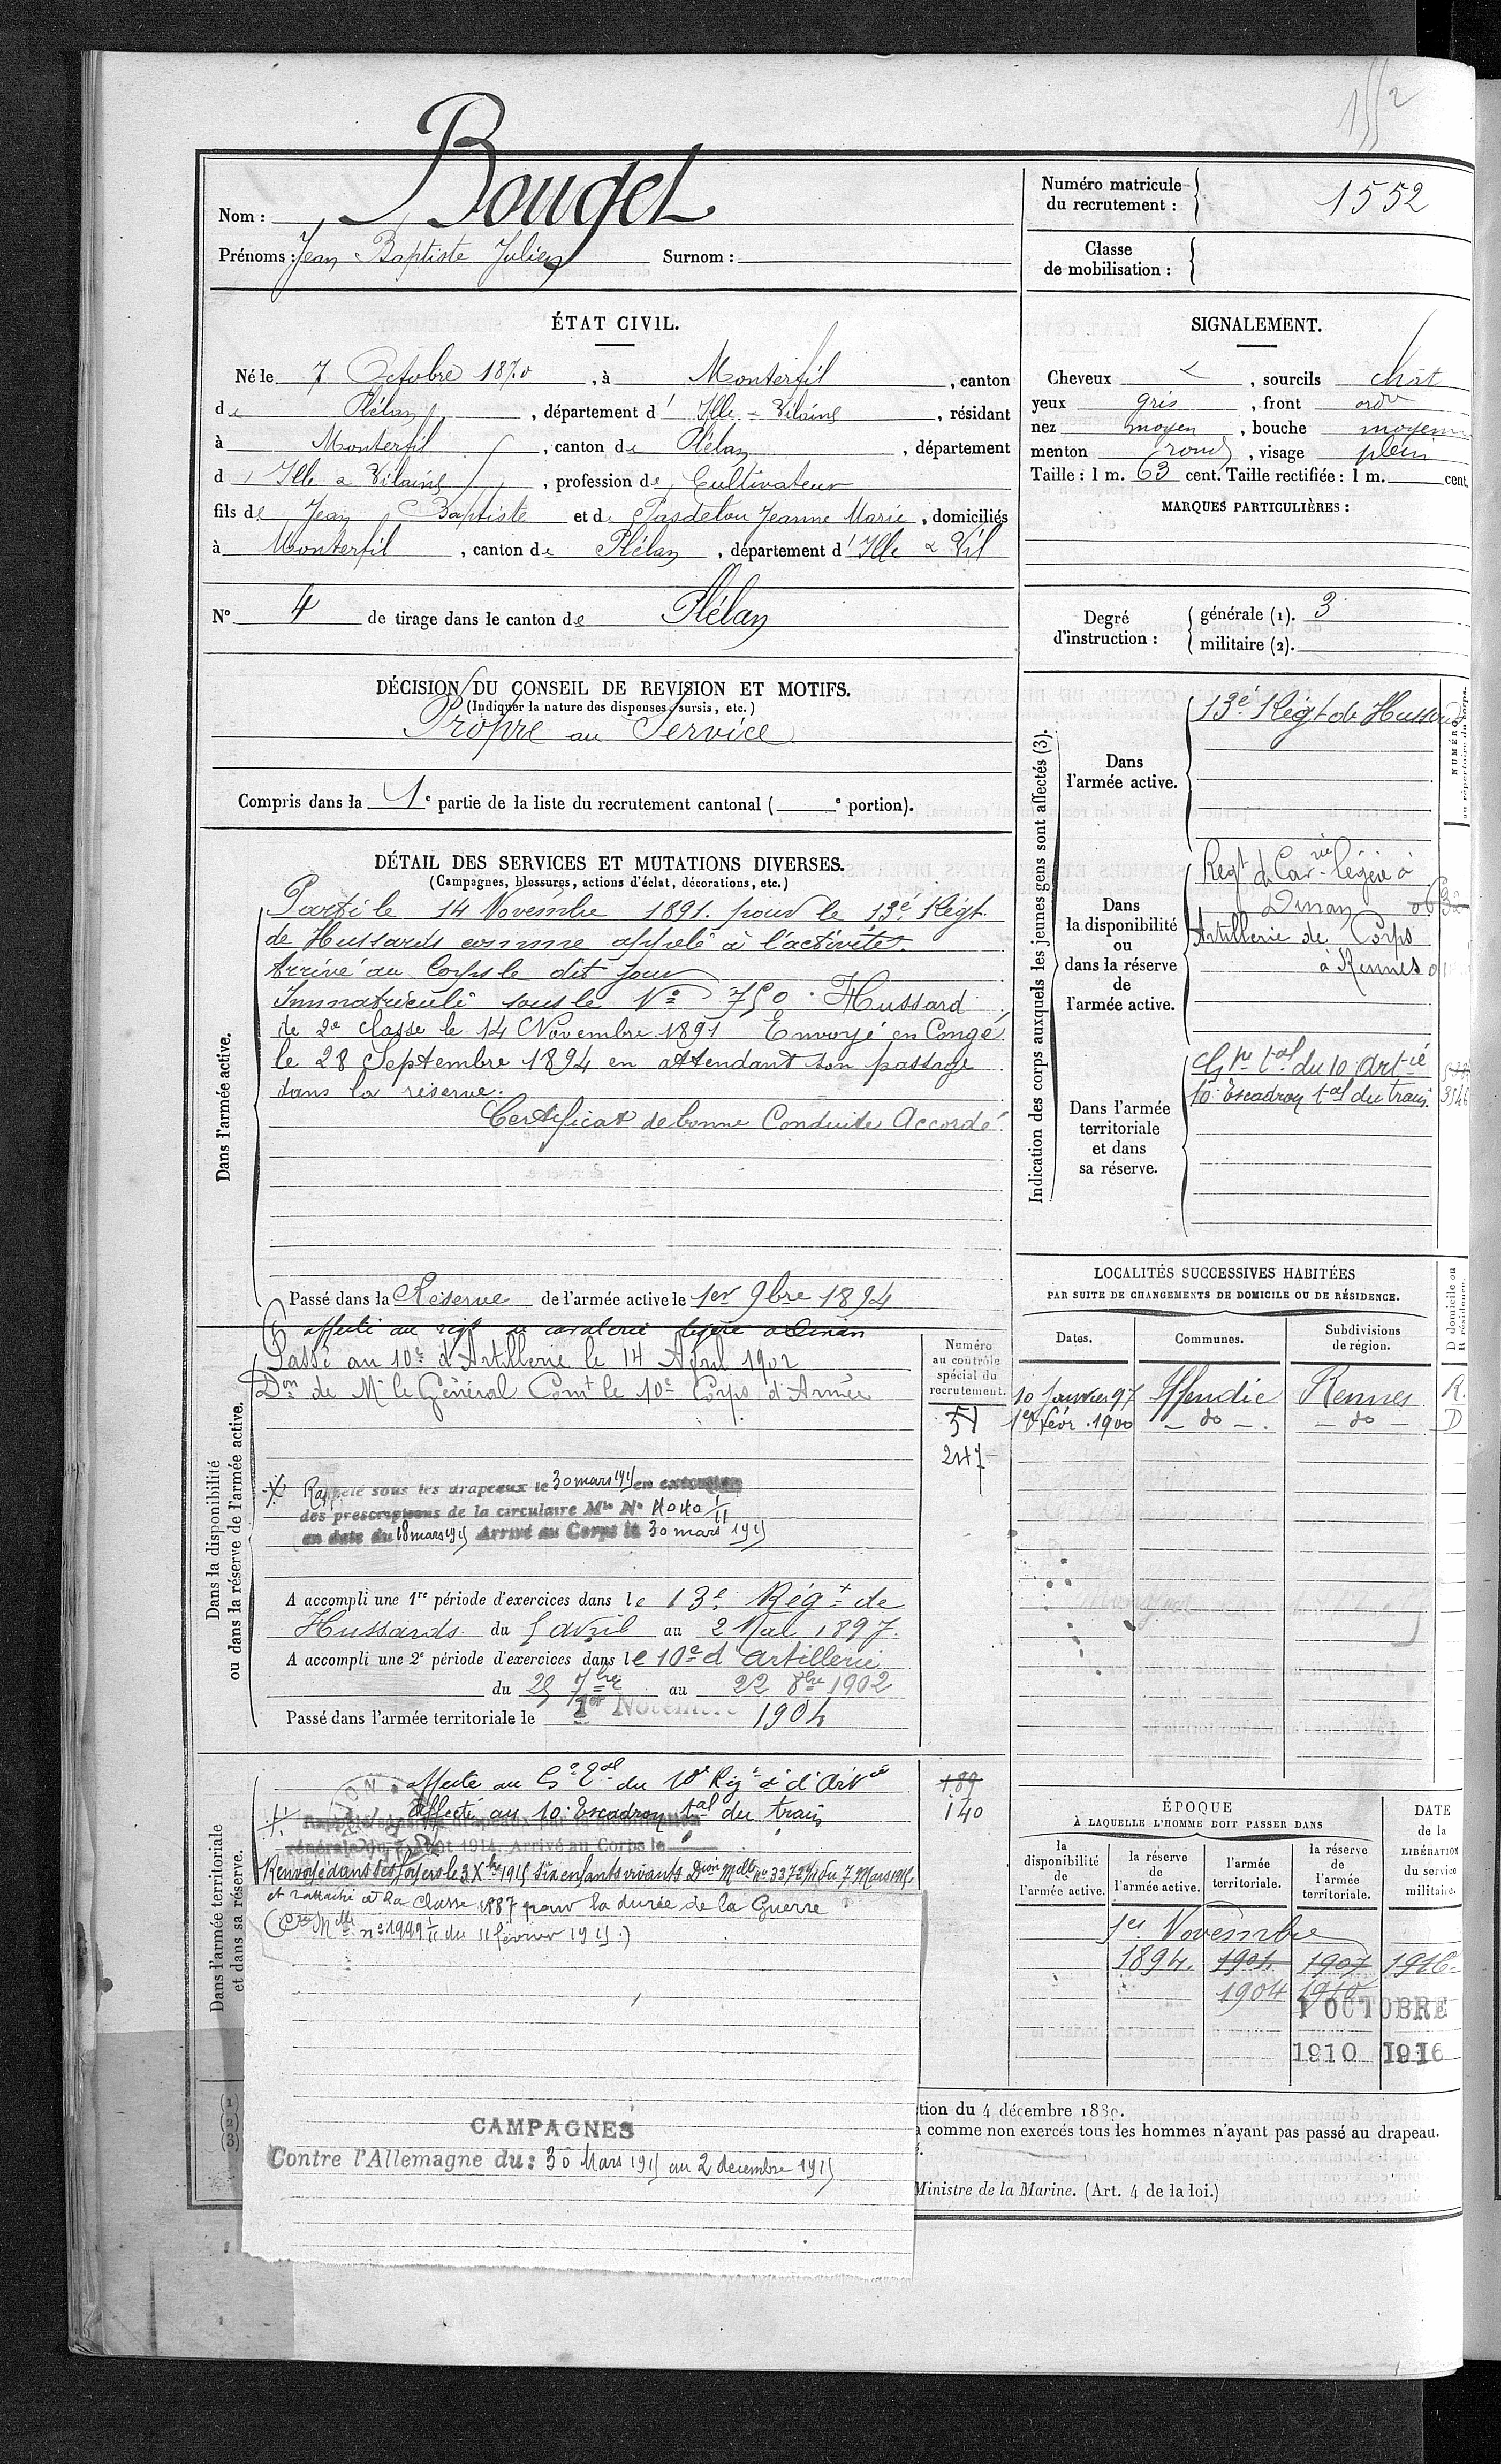 1552
Nom : Bouget
Prénoms : Jean Baptiste Julien Surnom :
Numéro matricule du recrutement : 1552
Classe de mobilisation :
ÉTAT CIVIL.
Né le 7 Octobre 1870, à Monterfil, canton
de Plélan, département d' Ille-&-Vilaine, résidant
à Monterfil, canton de Plélan, département
d' Ille & Vilaine, profession de Cultivateur
fils de Jean Baptiste et de Pasdelou Jeanne Marie, domiciliés
à Monterfil, canton de Plélan, département d' Ille & Vil
N° 4 de tirage dans le canton de Plélan
SIGNALEMENT.
Cheveux &, sourcils chat
yeux gris, front ordre
nez moyen, bouche moyenne
menton rond, visage plein
Taille : 1 m. 63 cent. Taille rectifiée : 1 m. cent.
MARQUES PARTICULIÈRES :
Degré d'instruction : générale (1). 3
militaire (2).
DÉCISION DU CONSEIL DE REVISION ET MOTIFS.
(Indiquer la nature des dispenses, sursis, etc.)
Propre au Service
Compris dans la 1e partie de la liste du recrutement cantonal ( e portion).
DÉTAIL DES SERVICES ET MUTATIONS DIVERSES.
(Campagnes, blessures, actions d'éclat, décorations, etc.)
Dans l'armée active.
Parti le 14 Novembre 1891. pour le 13e Régt.
de Hussards comme appelé à l'activité.
Arrivé au Corps le dit jour
Immatriculé sous le No 750. Hussard
de 2e classe le 14 Novembre 1891 Envoyé en Congé
le 28 Septembre 1894 en attendant son passage
dans la réserve.
Certificat de bonne Conduite Accordé
Passé dans la Réserve de l'armée active le 1er 9bre 1894
Dans la disponibilité
ou dans la réserve de l'armée active.
affecté au régt de cavalerie légère à Dinan
Passé au 10e d'Artillerie le 14 April 1902
Don de Mr le Général Comt le 10e Corps d'Armée
Numéro au contrôle spécial du recrutement.
51
247
Rappelé sous les drapeaux le 30 mars 1915 en exécution
des prescriptions de la circulaire Mlle N° 4040 I/II
en date du 18 mars 1915 Arrivé au Corps le 30 mars 1915
A accompli une 1re période d'exercices dans le 13e Régt de
Hussards du 5 avril au 2 Mai 1897.
A accompli une 2e période d'exercices dans le 10e d'artillerie
du 25 7bre au 22 8bre 1902
Passé dans l'armée territoriale le 1er Novembre 1904
Dans l'armée territoriale
et dans sa réserve.
affecté au Ge Tal du 10e Régt d'Artie
189
Affecté au 10e Escadron tal du train
140
Rappelé sous les drapeaux par la mobilisation
générale du Août 1914. Arrivé au Corps le
Renvoyé dans ses foyers le 3 Xbre 1915 Six enfants vivants Dion Melle no 3372 I/II du 7 Mars 1915.
et rattaché à la classe 1887 pour la durée de la Guerre
(Cre Mlle no 1949 I/II du 11 février 1915.)
CAMPAGNES
Contre l'Allemagne du : 30 Mars 1915 au 2 decembre 1915
Indication des corps auxquels les jeunes gens sont affectés (3).
NUMÉRO au répertoire du corps.
Dans l'armée active.
13e Régt de Hussards
Dans la disponibilité ou dans la réserve de l'armée active.
Regt de Cavrie légère à
Dinan
Artillerie de Corps
à Rennes
Dans l'armée territoriale et dans sa réserve.
Gpe tal du 10 Artie
10e Escadron tal du train 3546
LOCALITÉS SUCCESSIVES HABITÉES
PAR SUITE DE CHANGEMENTS DE DOMICILE OU DE RÉSIDENCE.
Dates. Communes. Subdivisions de région. D domicile ou R résidence.
10 Janvier 97 Iffendic Rennes R.
1er févr. 1900 - do - - do - D
ÉPOQUE
À LAQUELLE L'HOMME DOIT PASSER DANS
DATE de la LIBÉRATION du service militaire.
la disponibilité de l'armée active. la réserve de l'armée active. l'armée territoriale. la réserve de l'armée territoriale.
1er Novembre
1894. 1901. 1907 1916.
1904 1910
1 OCTOBRE
1910 1916
tion du 4 décembre 1889.
comme non exercés tous les hommes n'ayant pas passé au drapeau.
Ministre de la Marine. (Art. 4 de la loi.)
1
2
3